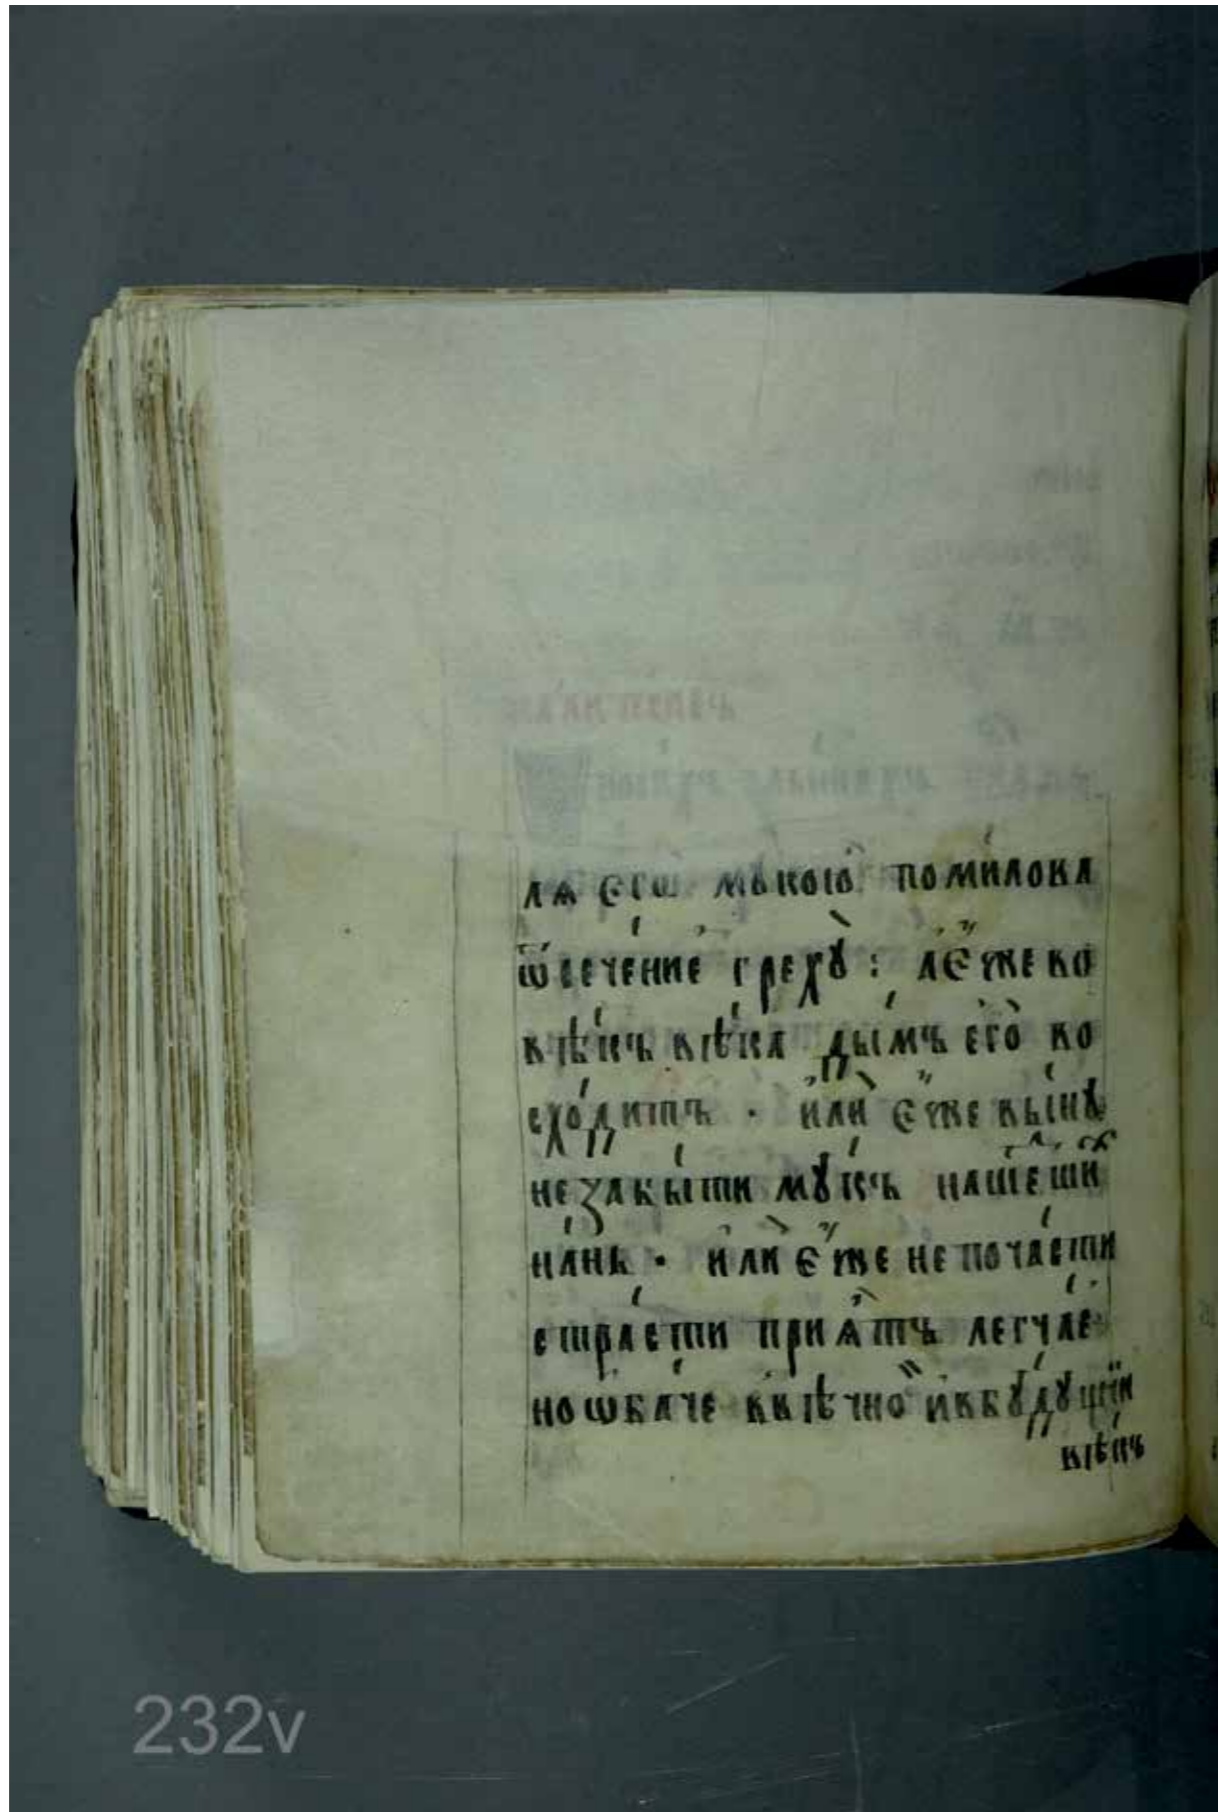 лѧ єгѡ мꙋкою помилова
ѿсечение грехꙋ : а єже во
вѣкъ вѣка дымъ его во
сходитъ · или єже выну
незабыти мꙋкъ нашеши
нань · или єже не почасти
страсти приѧтъ легчае
но ѡбаче вѣчно и вбꙋдꙋщїи
вѣкъ
232v